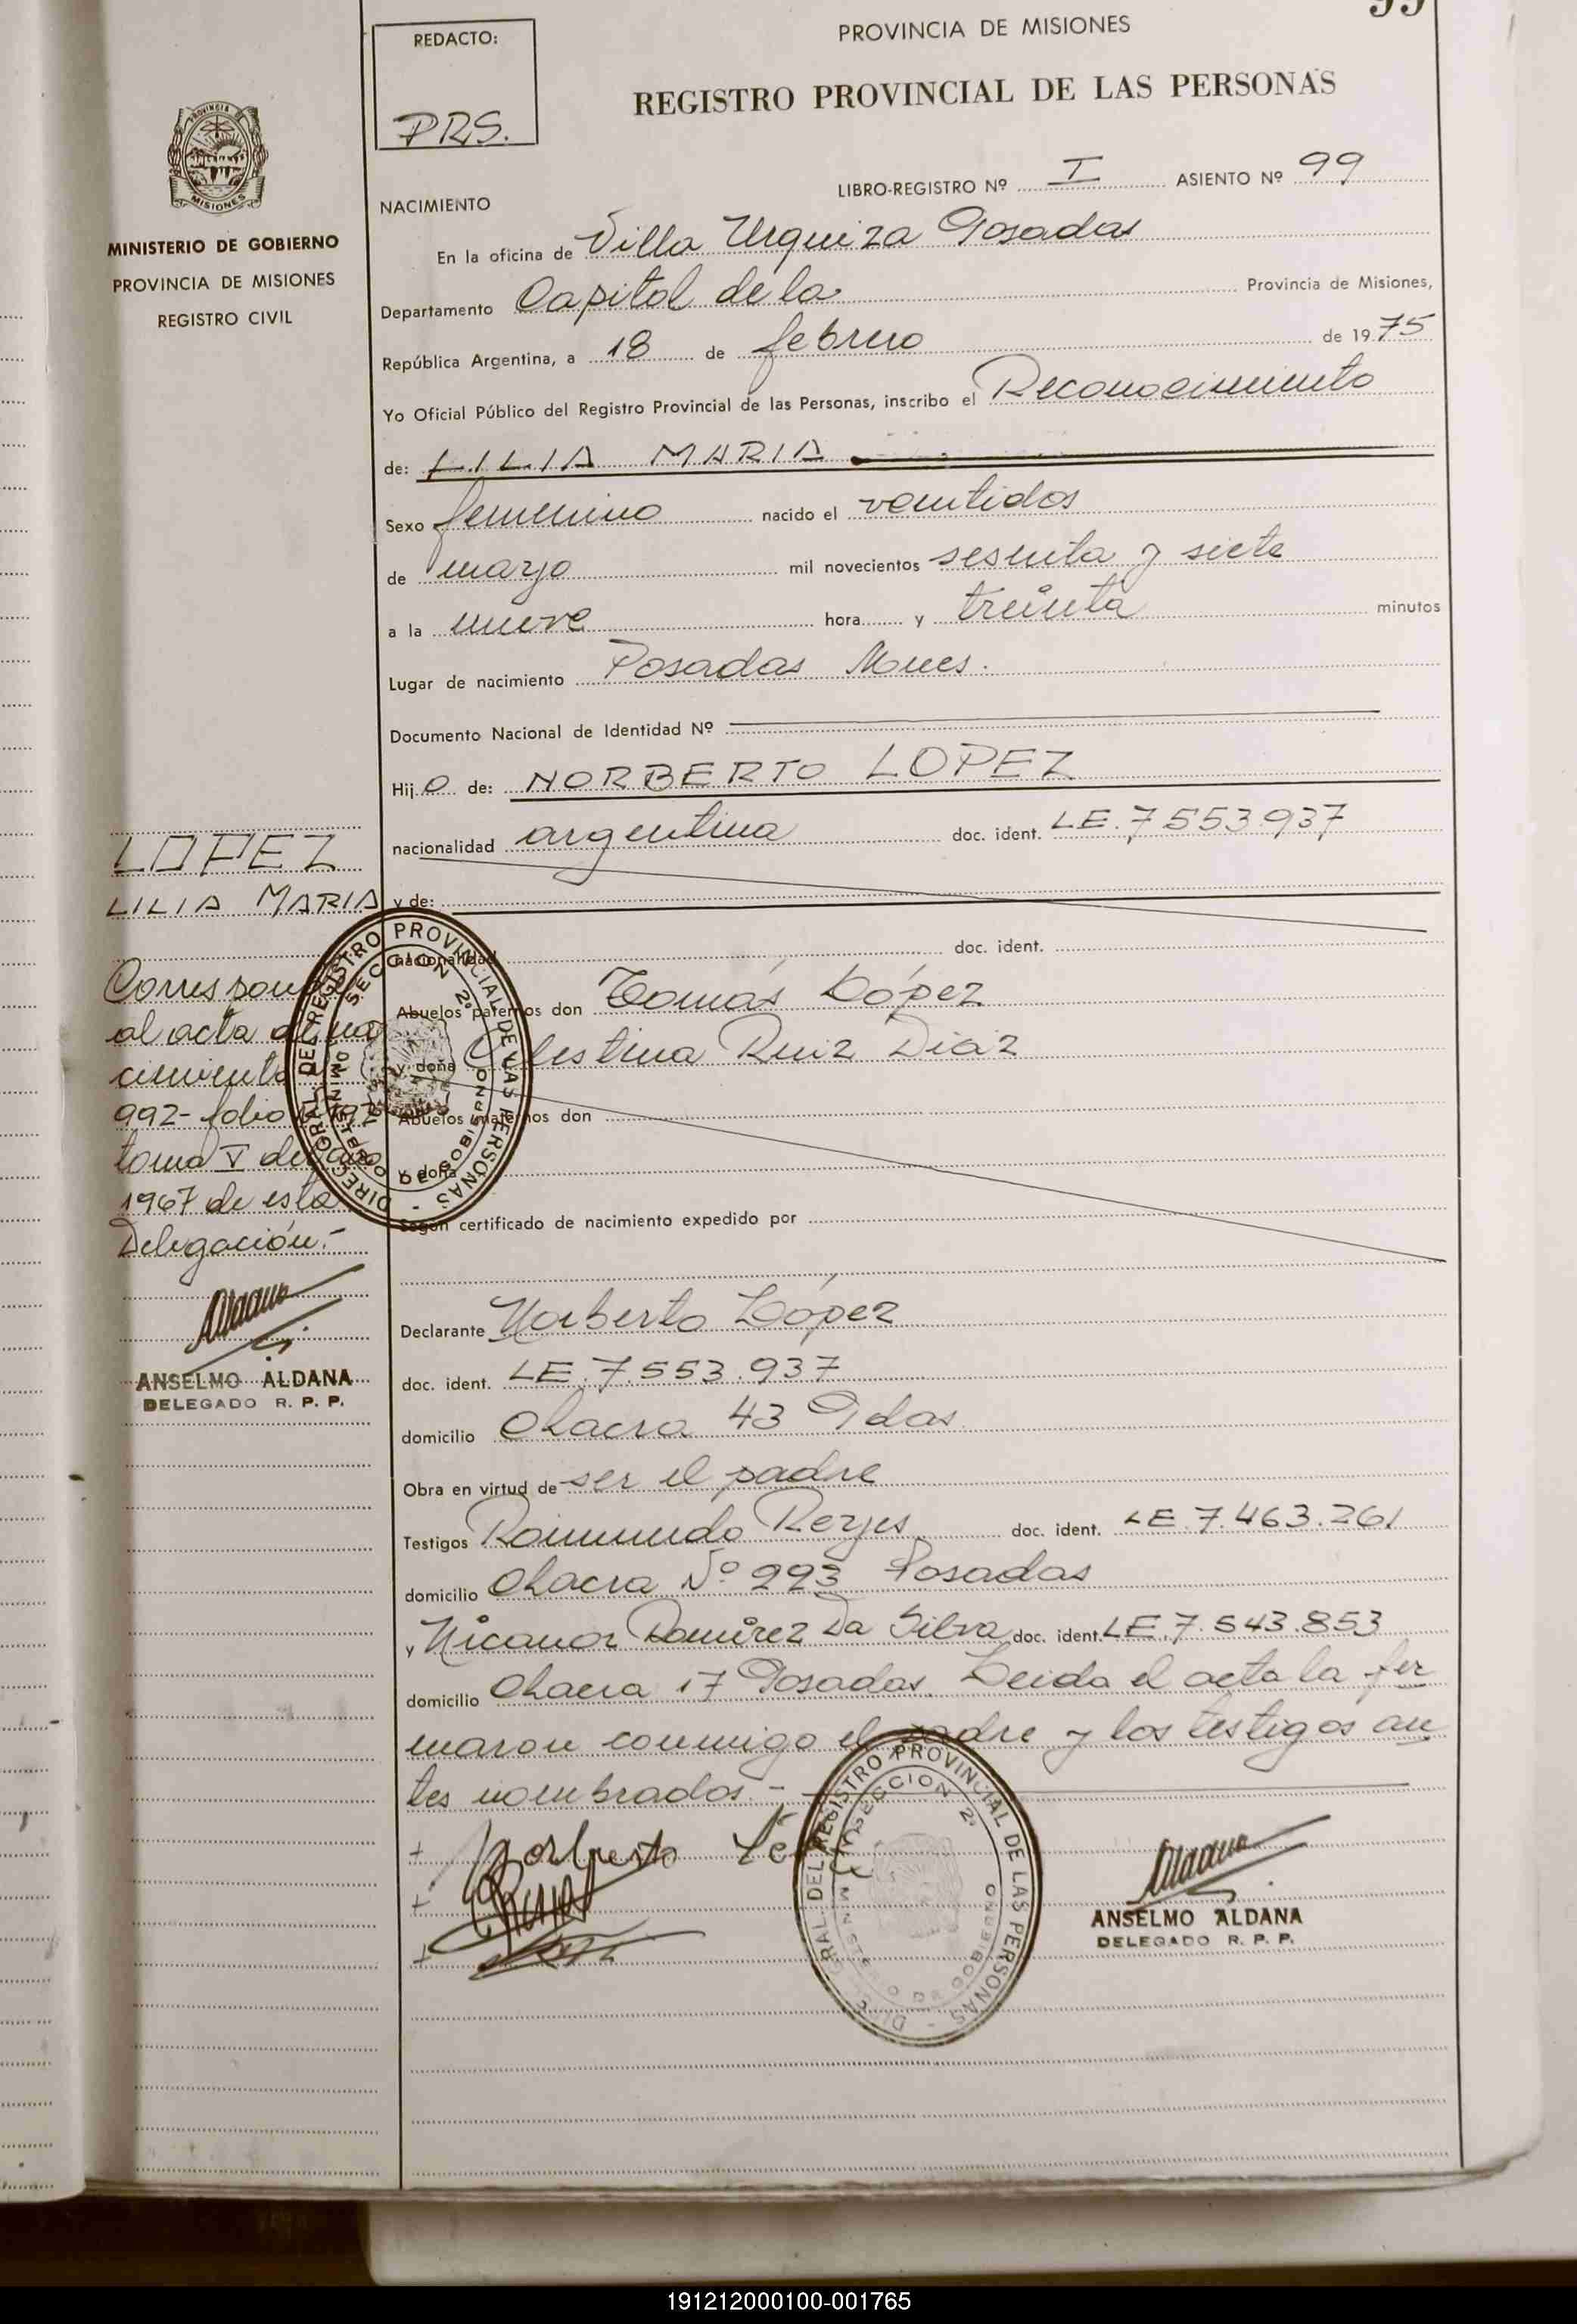 99
REDACTO:
PRS.
PROVINCIA DE MISIONES
REGISTRO PROVINCIAL DE LAS PERSONAS
PROVINCIA
MISIONES
MINISTERIO DE GOBIERNO
PROVINCIA DE MISIONES
REGISTRO CIVIL
NACIMIENTO
LIBRO-REGISTRO Nº I ASIENTO Nº 99
En la oficina de Villa Urquiza Posadas
Departamento Capital de la Provincia de Misiones,
República Argentina, a 18 de febrero de 1975
Yo Oficial Público del Registro Provincial de las Personas, inscribo el Reconocimiento
de: LILIA MARIA
Sexo femenino nacido el veintidos
de marzo mil novecientos sesenta y siete
a la nueve hora y treinta minutos
Lugar de nacimiento Posadas Mnes.
Documento Nacional de Identidad Nº
Hijo de: NORBERTO LOPEZ
nacionalidad argentina doc. ident. LE. 7553937
y de:
nacionalidad doc. ident.
Abuelos paternos don Tomás López
y doña Celestina Ruiz Diaz
Abuelos maternos don
y doña
Según certificado de nacimiento expedido por
Declarante Norberto López
doc. ident. LE. 7.553.937
domicilio Chacra 43 Pdas
Obra en virtud de ser el padre
Testigos Raimundo Reyes doc. ident. LE. 7.463.261
domicilio Chacra Nº 223 Posadas
y Nicanor Ramírez Da Silva doc. ident. LE. 7.543.853
domicilio Chacra 17 Posadas. Leida el acta la fir
maron conmigo el padre y los testigos an
tes nombrados.-
Norberto
ANSELMO ALDANA
DELEGADO R. P. P.
LOPEZ
LILIA MARIA
Corresponde
al acta de na
cimiento
992- folio
tomo V del año
1967 de esta
Delegación.-
ANSELMO ALDANA
DELEGADO R. P. P.
DIREC. GRAL. DEL REGISTRO PROVINCIAL DE LAS PERSONAS -
SECCION 2ª
MINISTERIO DE GOBIERNO
DIREC. GRAL. DEL REGISTRO PROVINCIAL DE LAS PERSONAS -
SECCION 2ª
MINISTERIO DE GOBIERNO
191212000100-001765